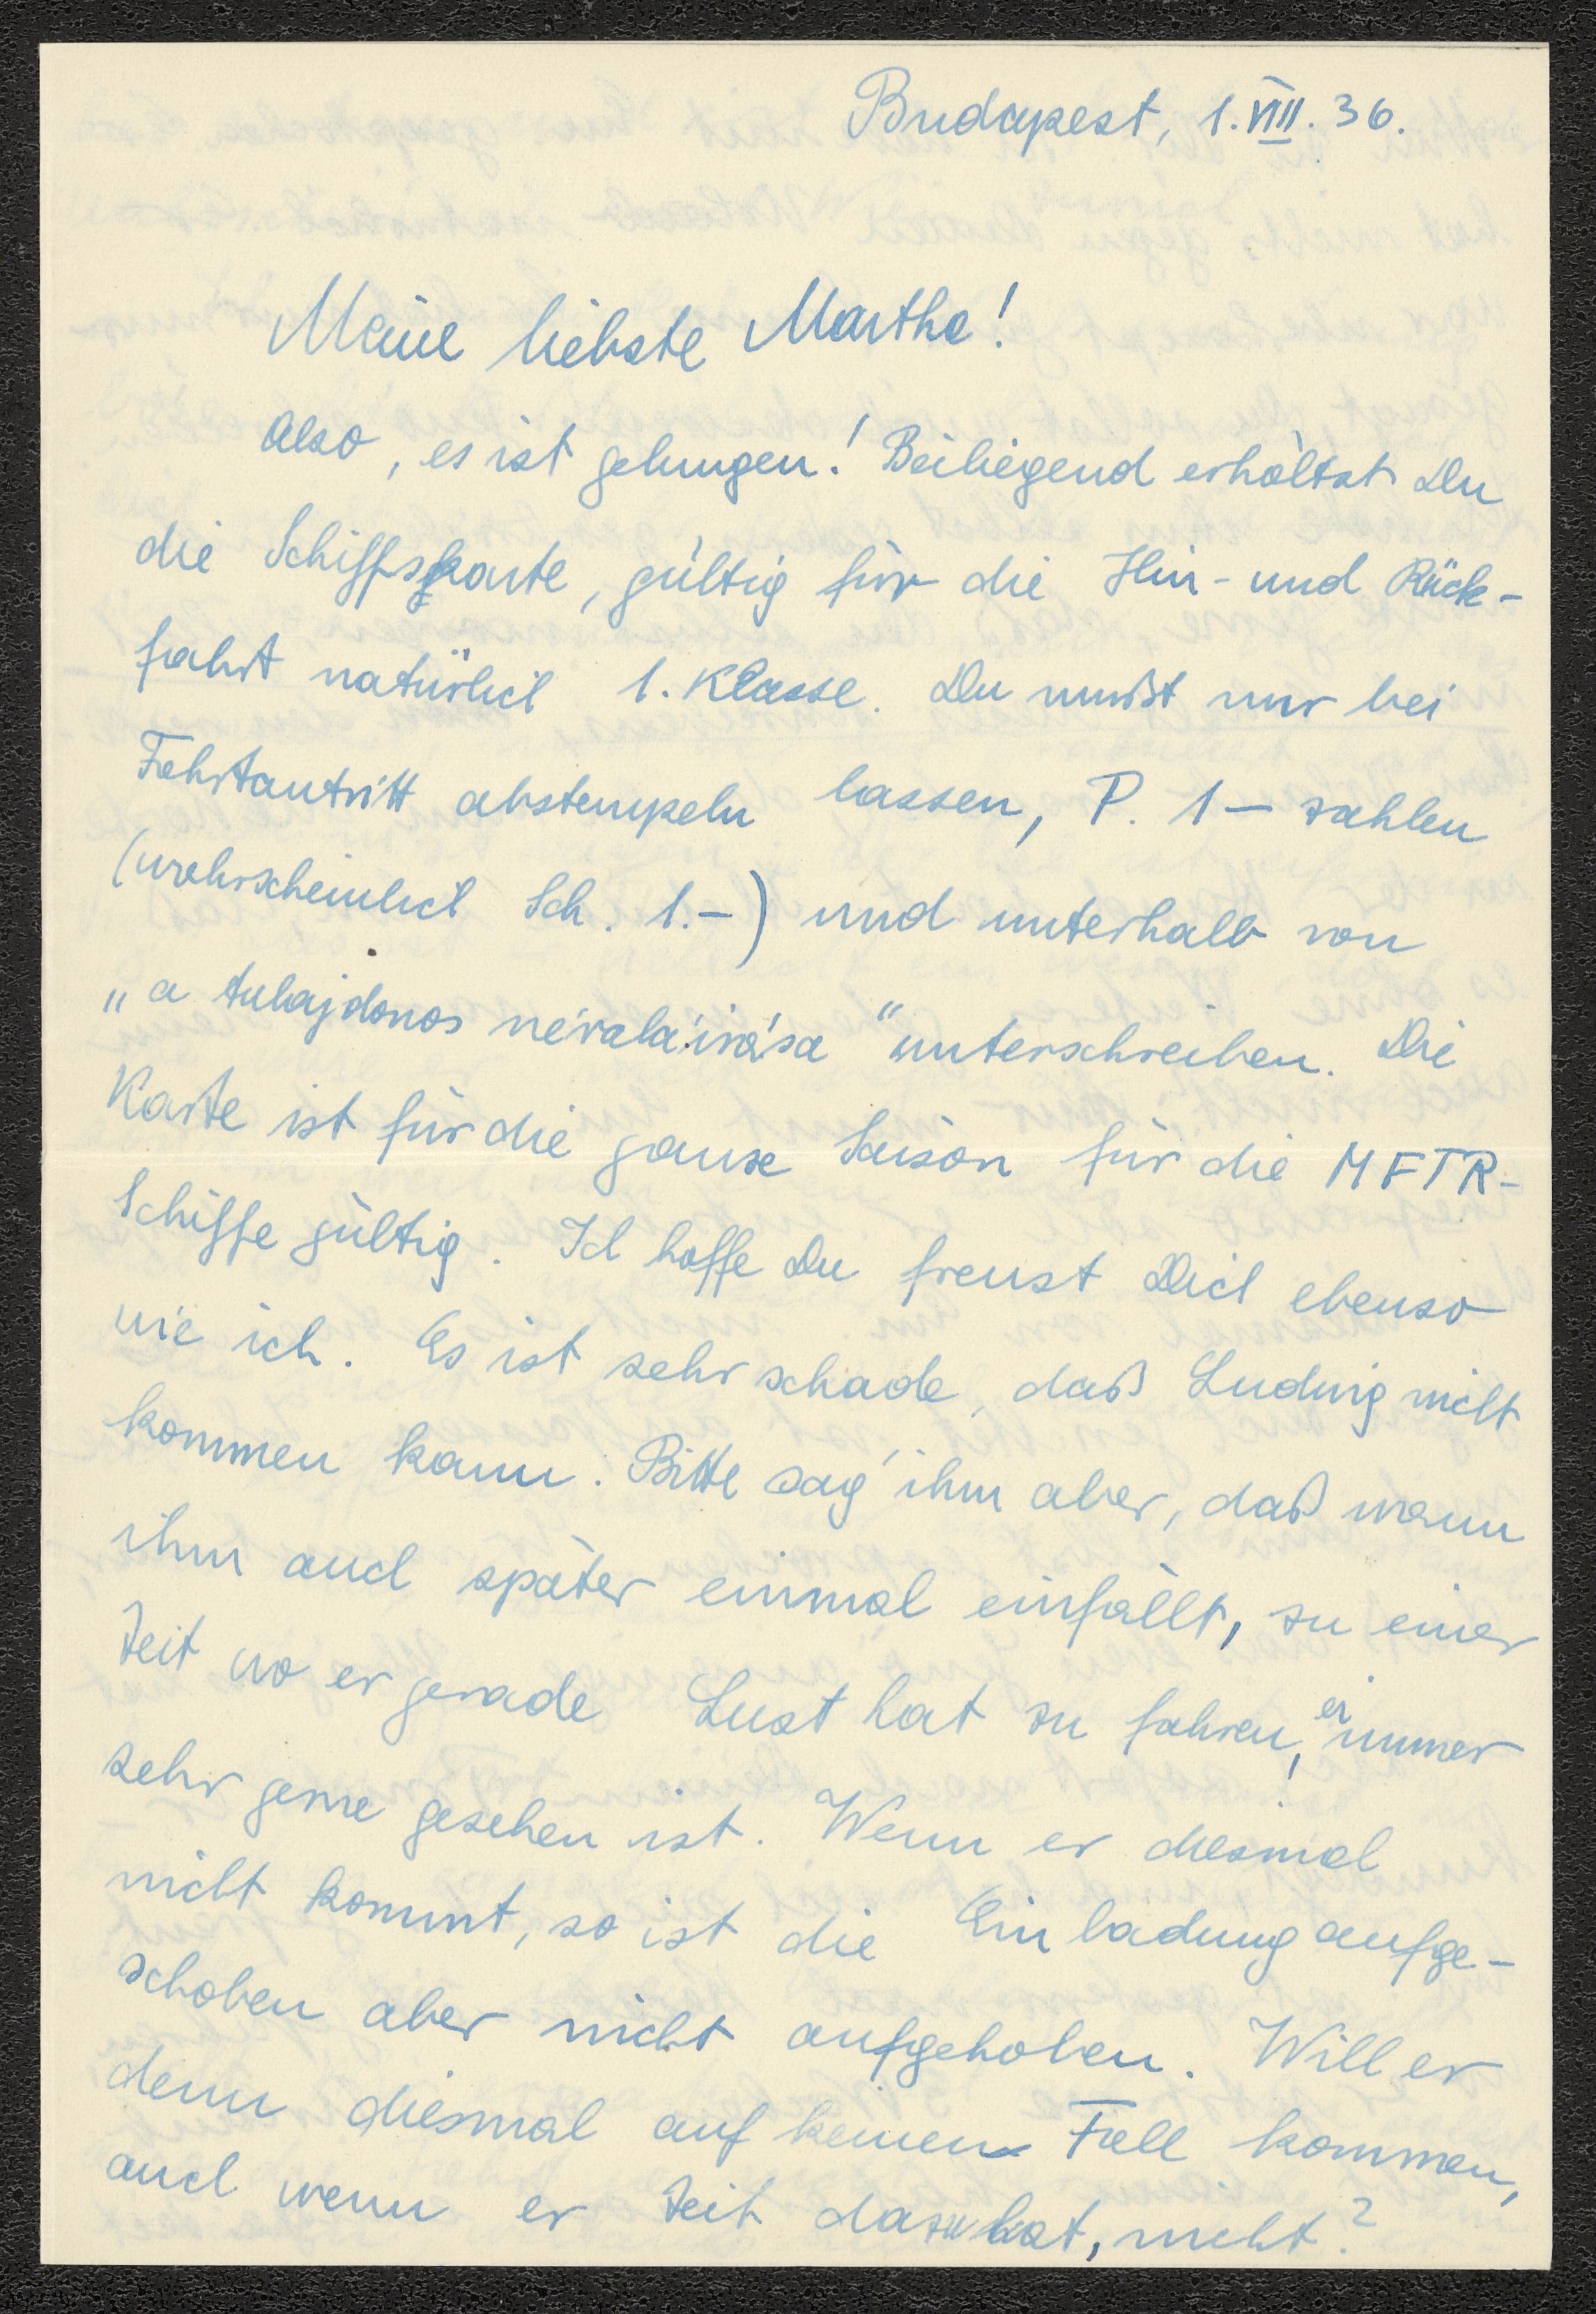 Budapest, 1. VIII. 36.
Meine liebste Martha!
Also, es ist gelungen! Beiliegend erhältst Du
die Schiffskarte, gültig für die Hin- und Rück-
fahrt natürlich 1. Klasse. Du mußt nur bei
Fahrtantritt abstempeln lassen, P. 1 — zahlen
(wahrscheinlich Sch. 1.–) und unterhalb von
„a tulajdonos névaláírása“ unterschreiben. Die
Karte ist für die ganze Saison für die MFTR-
Schiffe gültig. Ich hoffe Du freust Dich ebenso
wie ich. Es ist sehr schade, daß Ludwig nicht
kommen kann. Bitte sag' ihm aber, daß wann
ihm auch später einmal einfällt, zu einer
Zeit wo er gerade Lust hat zu fahren, er immer
sehr gerne gesehen ist. Wenn er diesmal
nicht kommt, so ist die Einladung aufge-
schoben aber nicht aufgehoben. Will er
denn diesmal auf keinen Fall kommen,
auch wenn er Zeit dazu hat, nicht?